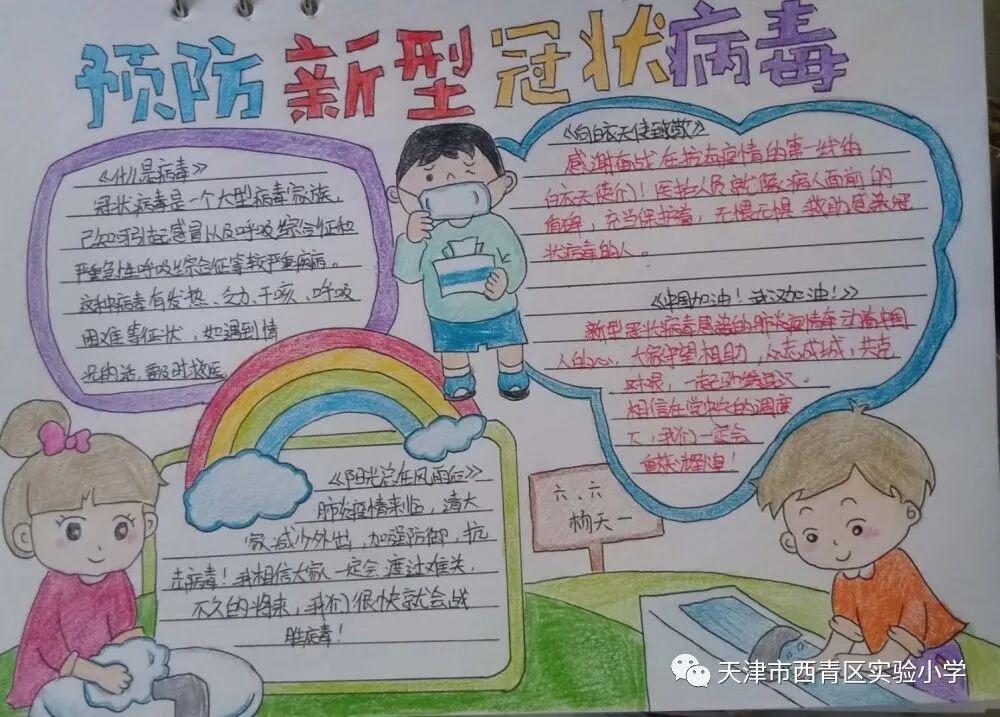 预防新型冠状病毒
《什么是病毒》
冠状病毒是一个大型病毒家族，
已知可引起感冒以及呼吸综合征和
严重急性呼吸综合征等较严重疾病。
这种病毒有发热、乏力、干咳、呼吸
困难等症状，如遇到情
况的话，要及时就医
《向白衣天使致敬》
感谢奋战在抗击疫情的第一线的
白衣天使们！医护人员就像病人面前的
盾牌，充当保护着，无惧无惧 救助感染冠
状病毒的人。
《中国加油！武汉加油！》
新型冠状病毒感染的肺炎疫情牵动着中国
人的心，大家守望相助，众志成城，共克
时艰，一起驰援武汉。
相信在党中央的调度
下，我们一定会
重获辉煌！
《阳光总在风雨后》
肺炎疫情来临，请大
家减少外出，加强防御，抗
击病毒！我相信大家一定会渡过难关，
不久的将来，我们很快就会战
胜病毒！
六、六
杨天一
天津市西青区实验小学